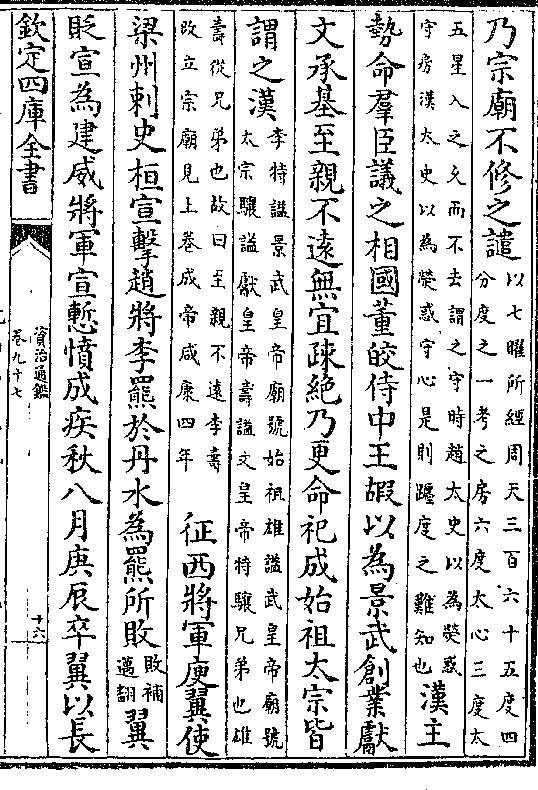 乃宗廟不修之譴
以七曜所經周天三百六十五度四
分度之一考之房六度太心三度太
五星入之久而不去謂之守時趙太史以為熒惑
守房漢太史以為熒惑守心是則躔度之難知也
漢主
勢命羣臣議之相國董皎侍中王嘏以為景武創業獻
文承基至親不遠無宜疎絶乃更命祀成始祖太宗皆
謂之漢
李特諡景武皇帝廟號始祖雄諡武皇帝廟號
太宗驤諡獻皇帝壽諡文皇帝特驤兄弟也雄
壽從兄弟也故曰至親不遠李壽
改立宗廟見上卷成帝咸康四年
征西將軍庾翼使
梁州刺史桓宣擊趙將李羆於丹水為羆所敗
敗補
邁翻
翼
貶宣為建威將軍宣慙憤成疾秋八月庚辰卒翼以長
欽定四庫全書
資治通鑑
卷九十七
十六